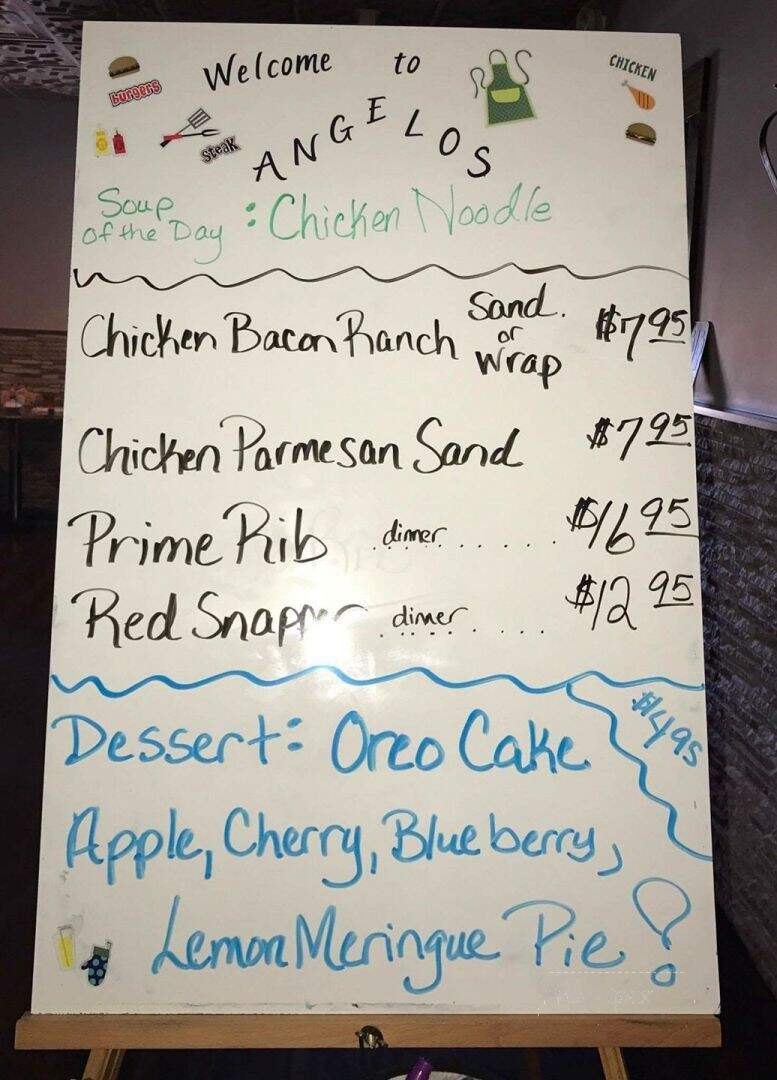 burgers
Welcome to
CHICKEN
steak
ANGELOS
Soup
of the Day : Chicken Noodle
Chicken Bacon Ranch Sand. or Wrap $7 95
Chicken Parmesan Sand $7 95
Prime Rib dinner $16 95
Red Snapper dinner $12 95
Dessert: Oreo Cake $4 95
Apple, Cherry, Blueberry,
Lemon Meringue Pie !